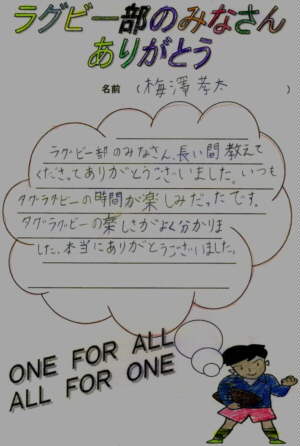 ラグビー部のみなさん
ありがとう
名前 (梅澤孝太)
ラグビー部のみなさん、長い間教えて
くださってありがとうございました。いつも
タグラグビーの時間が楽しみだったです。
タグラグビーの楽しさがよく分かりま
した。本当にありがとうございました。
ONE FOR ALL
ALL FOR ONE